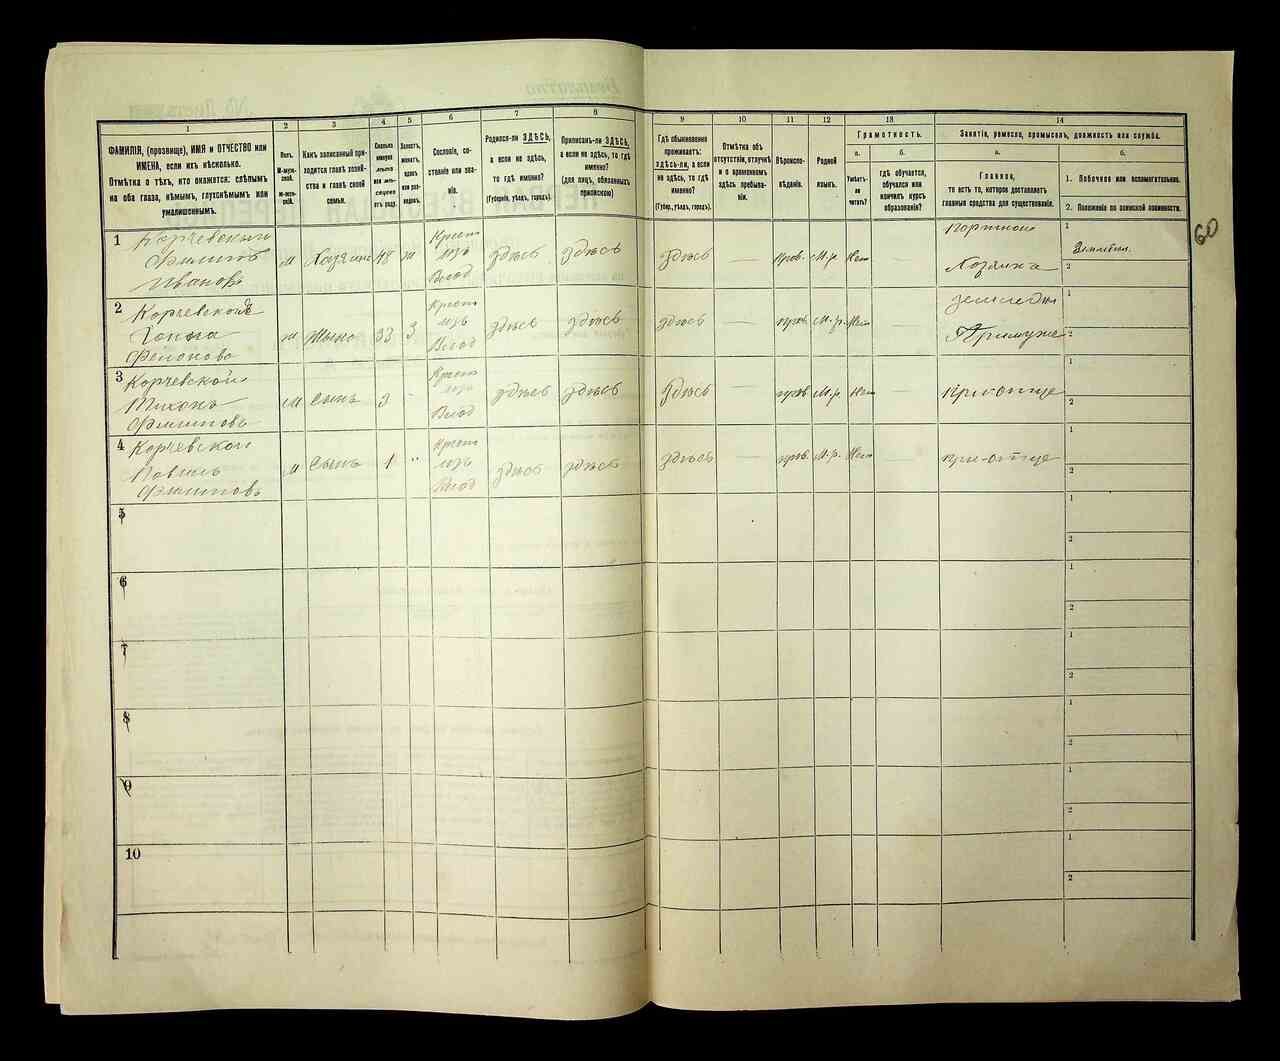 1
2
3
4
5
6
7
8
9
10
11
12
13
14
ФАМИЛІЯ, (прозвище), ИМЯ и ОТЧЕСТВО или
ИМЕНА, если ихъ нѣсколько.
Отмѣтка о тѣхъ, кто окажется: слѣпымъ
на оба глаза, нѣмымъ, глухонѣмымъ или
умалишеннымъ.
Полъ.
М-муж-
ской.
Ж-жен-
скій.
Какъ записанный при-
ходится главѣ хозяй-
ства и главѣ своей
семьи.
Сколько
минуло
лѣтъ
или мѣ-
сяцевъ
отъ роду.
Холостъ,
женатъ,
вдовъ
или раз-
веденъ.
Сословіе, со-
стояніе или зва-
ніе.
Родился-ли ЗДѢСЬ,
а если не здѣсь,
то гдѣ именно?
(Губернія, уѣздъ, городъ).
Приписанъ-ли ЗДѢСЬ,
а если не здѣсь, то гдѣ
именно?
(Для лицъ, обязанныхъ
припискою)
Гдѣ обыкновенно
проживаетъ:
здѣсь-ли, а если
не здѣсь, то гдѣ
именно?
(Губер., уѣздъ, городъ).
Отмѣтка объ
отсутствіи, отлучкѣ
и о временномъ
здѣсь пребыва-
ніи.
Вѣроиспо-
вѣданіе.
Родной
языкъ.
Грамотность.
а.
б.
Умѣетъ-
ли
читать?
гдѣ обучается,
обучался или
кончилъ курсъ
образованія?
Занятіе, ремесло, промыселъ, должность или служба.
а.
б.
Главное,
то есть то, которое доставляетъ
главныя средства для существованія.
1. Побочное или вспомогательное.
2. Положеніе по воинской повинности.
60
1
Корчевской
Филипъ
Ивановъ
м Хозяинъ 48 ж
Крест
изъ
Влад
здѣсь здѣсь здѣсь — прав. М.р. Нет
Портной
Хозяинъ
1
Земледел.
2
2
Корчевской
Фелонова
ж Жена 33 з
Крест
изъ
Влад
здѣсь здѣсь здѣсь — прав М.р. Нет
земледел
При муже
1
2
3
Корчевской
Тихонъ
Филиповъ
м Сынъ 3
Крест
изъ
Влад
здѣсь здѣсь здѣсь — прав М.р. Нет
при отце
1
2
4
Корчевской
Павилъ
Филиповъ
м Сынъ 1 "
Крест
изъ
Влад
здѣсь здѣсь здѣсь — прав. М.р. Нет
при-отце
1
2
5
1
2
6
1
2
7
1
2
8
1
2
9
1
2
10
1
2